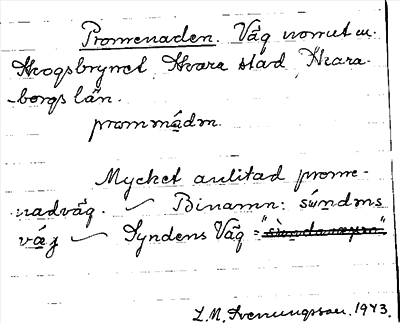 Promenaden. Väg norrut u.
Skogsbrynet, Skara stad, Skara-
borgs län.
prommádṇ.
Mycket anlitad prome-
nadväg. – Binamn: sýndṇs
väg – Syndens Väg =
L.M. Svenungsson. 1943.